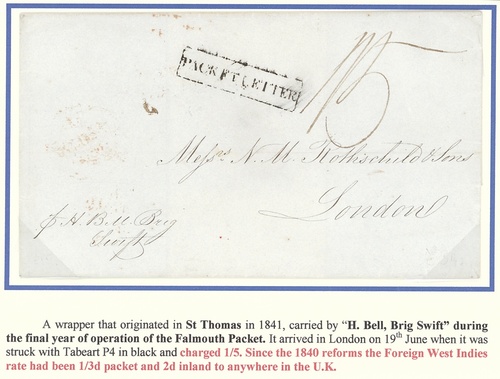 PACKET LETTER
1/5
Messrs N. M. Rothschild & Sons
London
p H. B. M. Brig
Swift
A wrapper that originated in St Thomas in 1841, carried by “H. Bell, Brig Swift” during
the final year of operation of the Falmouth Packet. It arrived in London on 19th June when it was
struck with Tabeart P4 in black and charged 1/5. Since the 1840 reforms the Foreign West Indies
rate had been 1/3d packet and 2d inland to anywhere in the U.K.